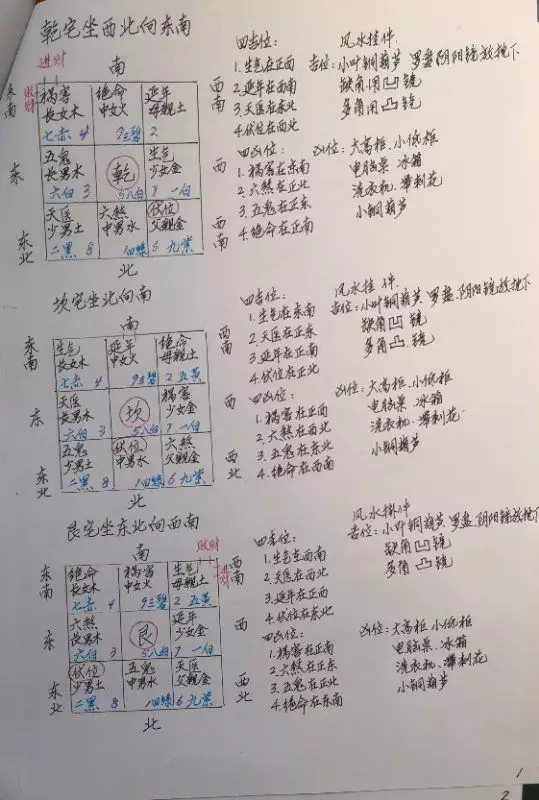 乾宅坐西北向东南
进财
南
东南
西南
祸害 绝命 延年
长女木 中女火 母親土
七赤 4 9三碧 2
东
西
五鬼 生气
长男木 乾 少女金
六白 3 5八白 7 一白
天医 六煞 伏位
少男土 中男水 父親金
二黑 8 1四緑 6 九紫
东北
西南
北
四吉位:
1.生气在正西
2.延年在西南
3.天医在东北
4.伏位在西北
四凶位:
1.祸害在东南
2.六煞在正北
3.五鬼在正东
4.绝命在正南
风水挂件
吉位:小叶铜葫芦.罗盘.阴阳镜放抱下
缺角凹镜
多角用凸镜
凶位:大高柜.小低柜
电脑桌 冰箱
洗衣机.带刺花
小铜葫芦
坎宅坐北向南
南
东南
西南
生气 延年 绝命
长女木 中女火 母親土
七赤 4 9三碧 2 五黄
东
西
天医 祸害
长男木 坎 少女金
六白 3 5八白 7 一白
五鬼 伏位 六煞
少男土 中男水 父親金
二黑 8 1四緑 6 九紫
东北
西北
北
四吉位:
1.生气在东南
2.天医在正东
3.延年在正南
4.伏位在正北
四凶位:
1.祸害在正西
2.六煞在西北
3.五鬼在东北
4.绝命在西南
风水挂件
吉位:小叶铜葫芦.罗盘.阴阳镜放抱下
缺角凹镜
多角凸镜
凶位:大高柜.小低柜
电脑桌.冰箱
洗衣机.带刺花
小铜葫芦
艮宅坐东北向西南
南
进财
东南
西南
绝命 祸害 生气
长女木 中女火 母親土
七赤 4 9三碧 2 五黄
东
西
六煞 延年
长男木 艮 少女金
六白 3 5八白 7 一白
伏位 五鬼 天医
少男土 中男水 父親金
二黑 8 1四緑 6 九紫
东北
西北
北
四吉位:
1.生气在西南
2.天医在西北
3.延年在正西
4.伏位在东北
四凶位:
1.祸害在正南
2.六煞在正东
3.五鬼在正北
4.绝命在东南
风水掛件
吉位:小叶铜葫芦.罗盘.阴阳镜放抱下
缺角凹镜
多角凸镜
凶位:大高柜 小低柜
电脑桌.冰箱
洗衣机.带刺花
小铜葫芦
1
2